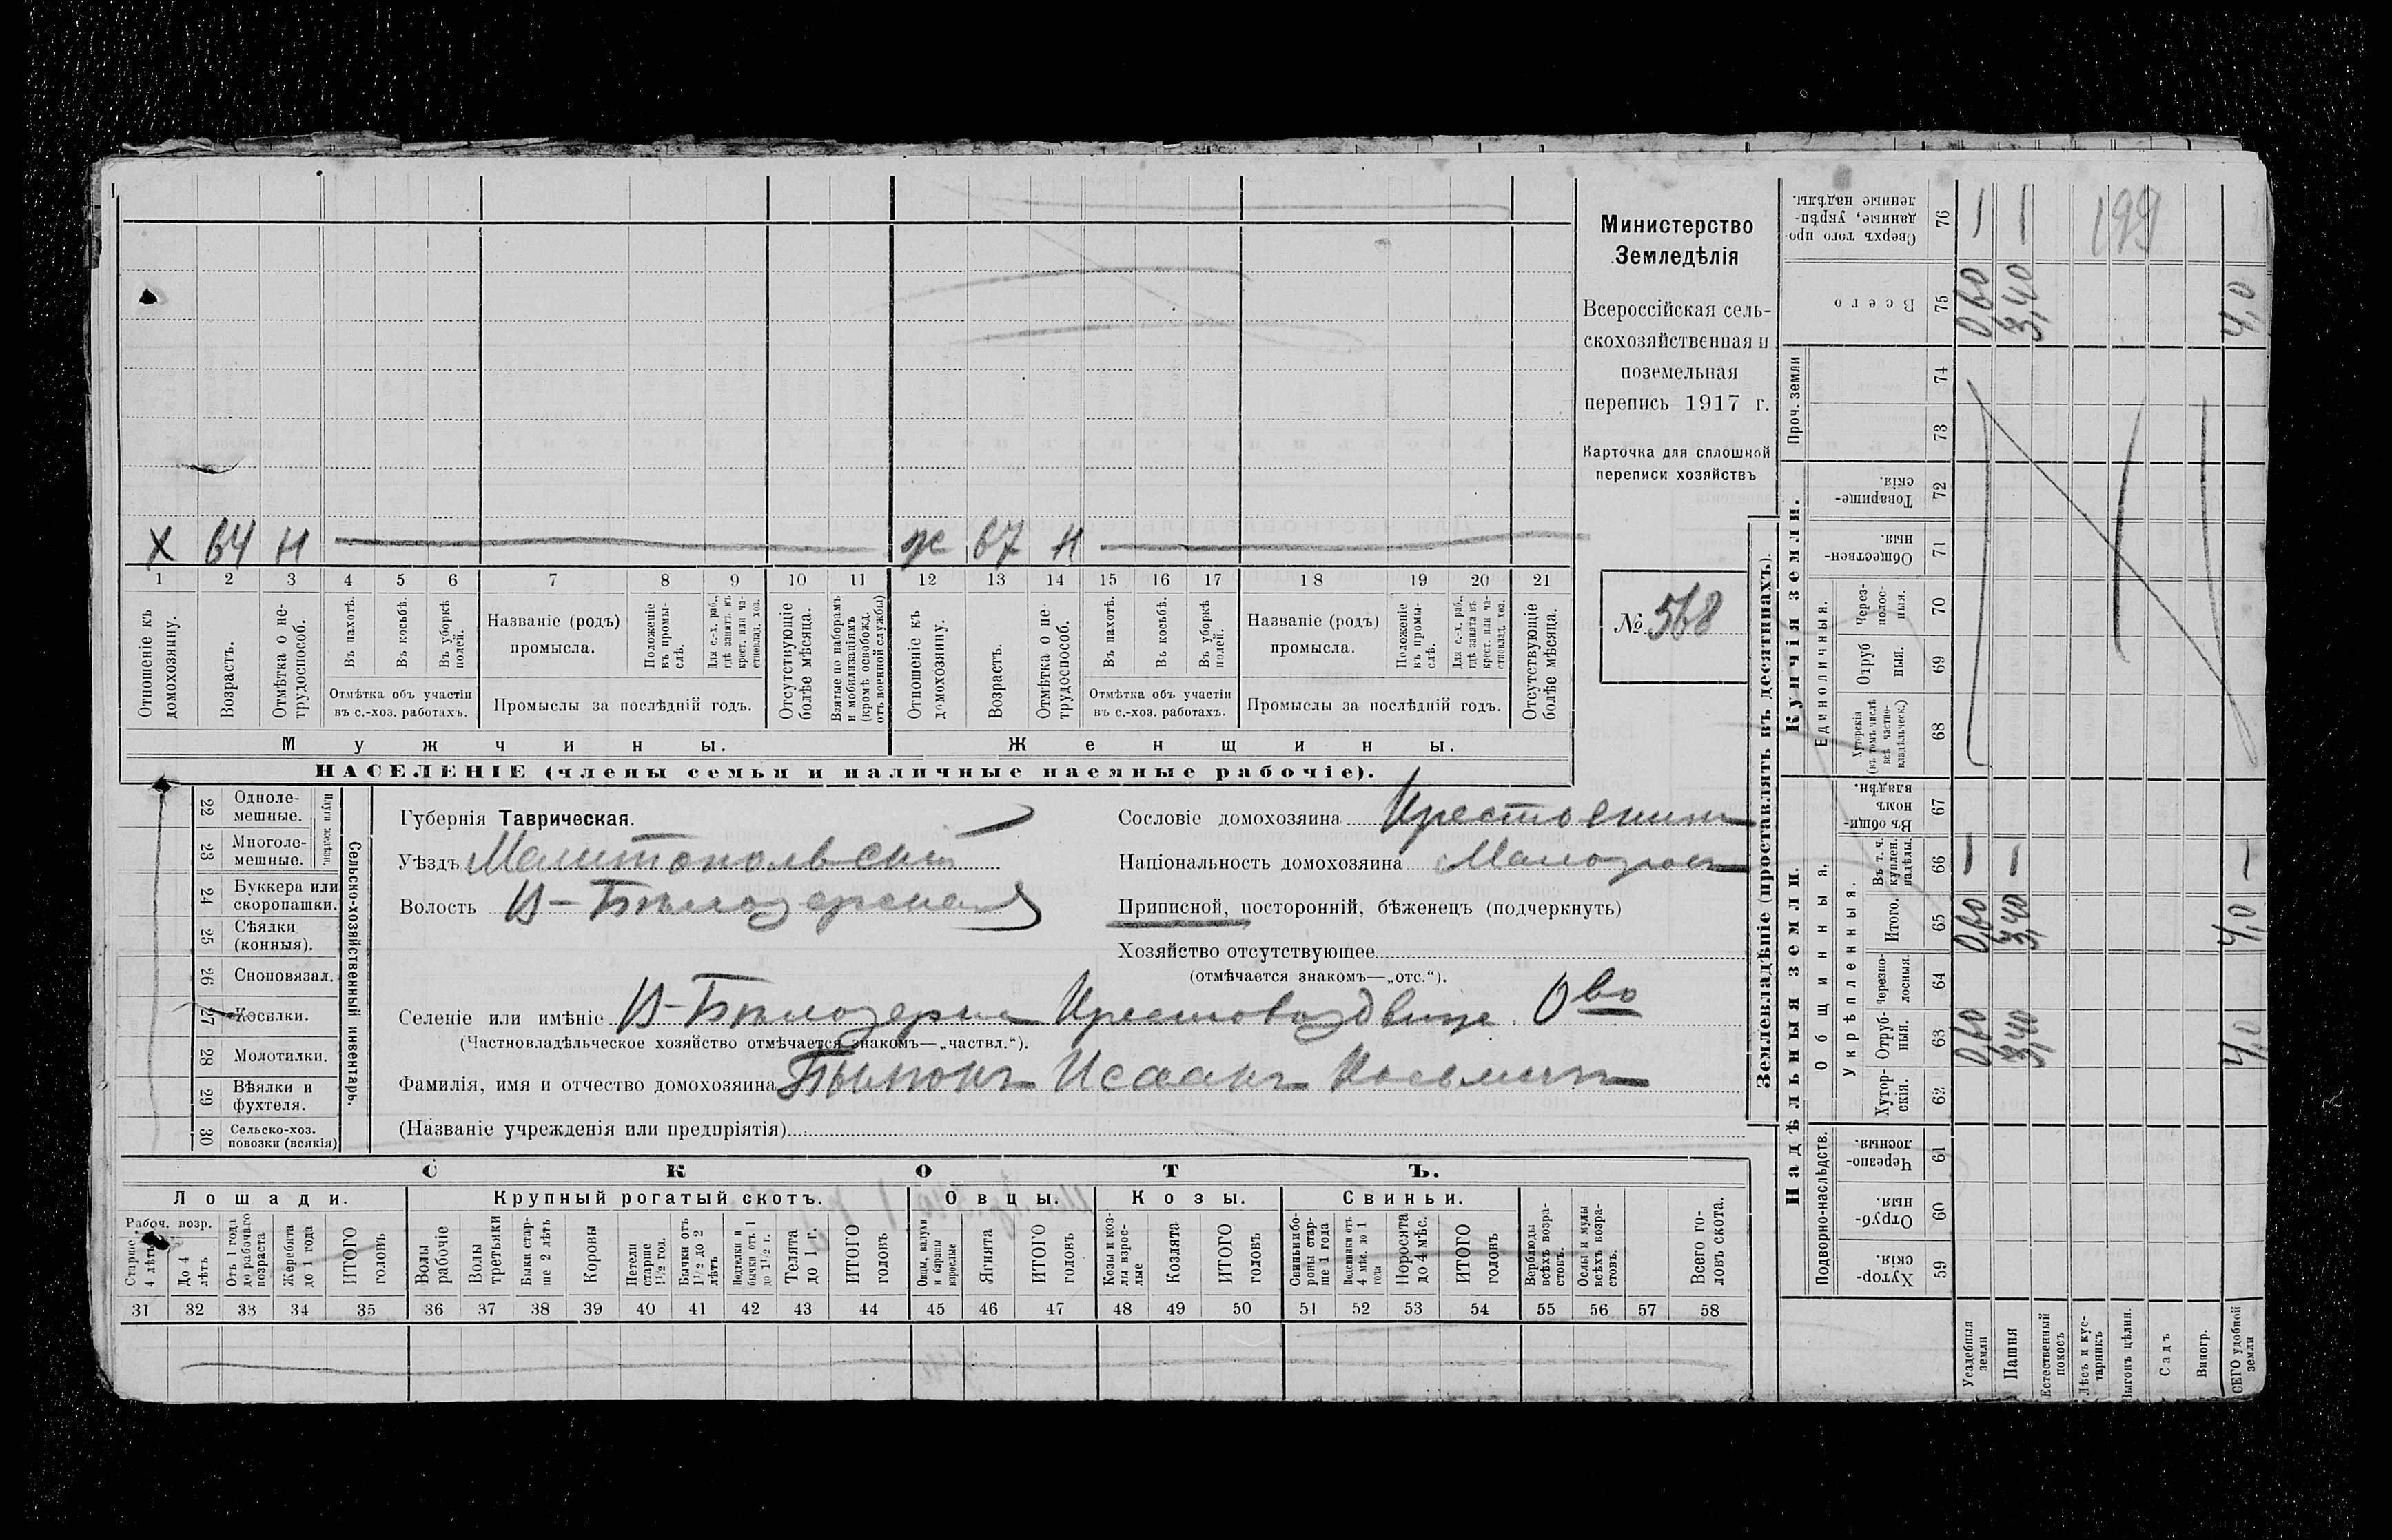 Министерство
Земледѣлія
Всероссійская сель-
скохозяйственная и
поземельная
перепись 1917 г.
Карточка для сплошной
переписи хозяйствъ
№ 568
Х 64 Н ж 67 Н
1 2 3 4 5 6 7 8 9 10 11 12 13 14 15 16 17 18 19 20 21
Отношеніе къ домохозяину.
Возрастъ.
Отмѣтка о не-трудоспособ.
Въ пахотѣ.
Въ косьбѣ.
Въ уборкѣ полей.
Отмѣтка объ участіи
въ с.-хоз. работахъ.
Названіе (родъ)
промысла.
Положеніе въ промы-слѣ.
Для с.-х. раб., гдѣ занятъ въ крест. или ча-стновлад. хоз.
Промыслы за послѣдній годъ.
Отсутствующіе болѣе мѣсяца.
Взятые по наборамъ и мобилизаціямъ (кромѣ освобожд. отъ военной службы)
Отношеніе къ домохозяину.
Возрастъ.
Отмѣтка о не-трудоспособ.
Въ пахотѣ.
Въ косьбѣ.
Въ уборкѣ полей.
Отмѣтка объ участіи
въ с.-хоз. работахъ.
Названіе (родъ)
промысла.
Положеніе въ промы-слѣ.
Для с.-х. раб., гдѣ занята въ крест. или ча-стновлад. хоз.
Промыслы за послѣдній годъ.
Отсутствующіе болѣе мѣсяца.
Мужчины. Женщины.
НАСЕЛЕНІЕ (члены семьи и наличные наемные рабочіе).
Сельско-хозяйственный инвентарь.
Плуги желѣзн.
22 Одноле-мешные.
23 Многоле-мешные.
24 Буккера или скоропашки.
25 Сѣялки (конныя).
26 Сноповязал.
27 Косилки.
28 Молотилки.
29 Вѣялки и фухтеля.
30 Сельско-хоз. повозки (всякія)
Губернія Таврическая.
Уѣздъ Мелитопольскій
Волость В-Бѣлозерская
Сословіе домохозяина Крестьянин
Національность домохозяина Малоросъ
Приписной, посторонній, бѣженецъ (подчеркнуть)
Хозяйство отсутствующее
(отмѣчается знакомъ—„отс.“).
Селеніе или имѣніе В-Бѣлозерка Крестовоздвиж. О-во
(Частновладѣльческое хозяйство отмѣчается знакомъ—„частвл.“).
Фамилія, имя и отчество домохозяина Исаакъ Косьмичъ
(Названіе учрежденія или предпріятія)
СКОТЪ.
Лошади. Крупный рогатый скотъ. Овцы. Козы. Свиньи.
Рабоч. возр.
Старше 4 лѣтъ
До 4 лѣтъ
Отъ 1 года до рабочаго возраста
Жеребята до 1 года
ИТОГО головъ
Волы рабочіе
Волы третьяки
Быки стар-ше 2 лѣтъ
Коровы
Нетели старше 1 1/2 год.
Бычки отъ 1 1/2 до 2 лѣтъ
Подтелки и бычки отъ 1 до 1 1/2 г.
Телята до 1 г.
ИТОГО головъ
Овцы, валухи и бараны взрослые
Ягнята
ИТОГО головъ
Козы и коз-лы взрос-лые
Козлята
ИТОГО головъ
Свиньи и бо-ровы стар-ше 1 года
Подсвинки отъ 4 мѣс. до 1 года
Поросята до 4 мѣс.
ИТОГО головъ
Верблюды всѣхъ возра-стовъ.
Ослы и мулы всѣхъ возра-стовъ.
Всего го-ловъ скота.
31 32 33 34 35 36 37 38 39 40 41 42 43 44 45 46 47 48 49 50 51 52 53 54 55 56 57 58
Землевладѣніе (проставлять въ десятинахъ).
Надѣльныя земли.
Купчія земли.
Проч. земли
Подворно-наслѣдств.
Общинныя.
Укрѣпленныя.
Единоличныя.
Сверхъ того про-данные, укрѣп-ленные надѣлы. 76 1 1 199
Всего 75 0,60 3,40 4,0
74
73
Товарище-скія. 72
Обществен-ныя. 71
Через-полос-ныя. 70
Отруб-ныя. 69
Хуторскія (въ томъ числѣ всѣ частно-владѣльческ.) 68
Въ общин-номъ владѣн. 67
Въ т. ч. куплен. надѣлы. 66
Итого. 65 0,60 3,40 4,0
Черезпо-лосныя. 64
Отруб-ныя. 63 0,60 3,40 4,0
Хутор-скія. 62
Черезпо-лосныя. 61
Отруб-ныя. 60
Хутор-скія. 59
Усадебныя земли
Пашня
Естественный покосъ
Лѣсъ и кус-тарникъ
Выгонъ цѣлин.
Садъ
Виногр.
ВСЕГО удобной земли